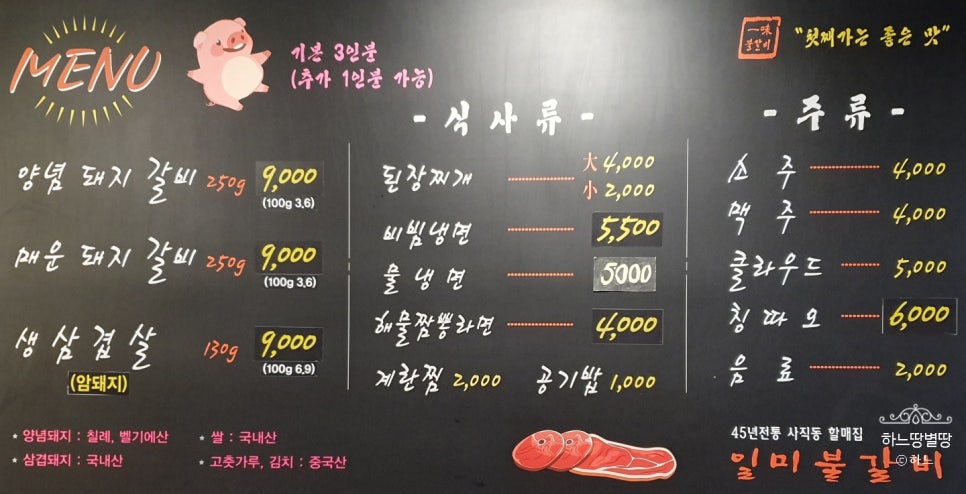 MENU
기본 3인분
(추가 1인분 가능)
一味
불갈비
"첫째가는 좋은 맛"
양념 돼지 갈비 250g 9,000
(100g 3,6)
매운 돼지 갈비 250g 9,000
(100g 3,6)
생 삼 겹 살 130g 9,000
(100g 6,9)
(암돼지)
- 식 사 류 -
된장찌개 大 4,000
小 2,000
비빔냉면 5,500
물 냉 면 5000
해물짬뽕라면 4,000
계란찜 2,000 공기밥 1,000
- 주 류 -
소 주 4,000
맥 주 4,000
클라우드 5,000
칭 따 오 6,000
음 료 2,000
* 양념돼지 : 칠레, 벨기에산
* 쌀 : 국내산
* 삼겹돼지 : 국내산
* 고춧가루, 김치 : 중국산
45년전통 사직동 할매집
일 미 불 갈 비
하느땅별땅
ⓒ 하느